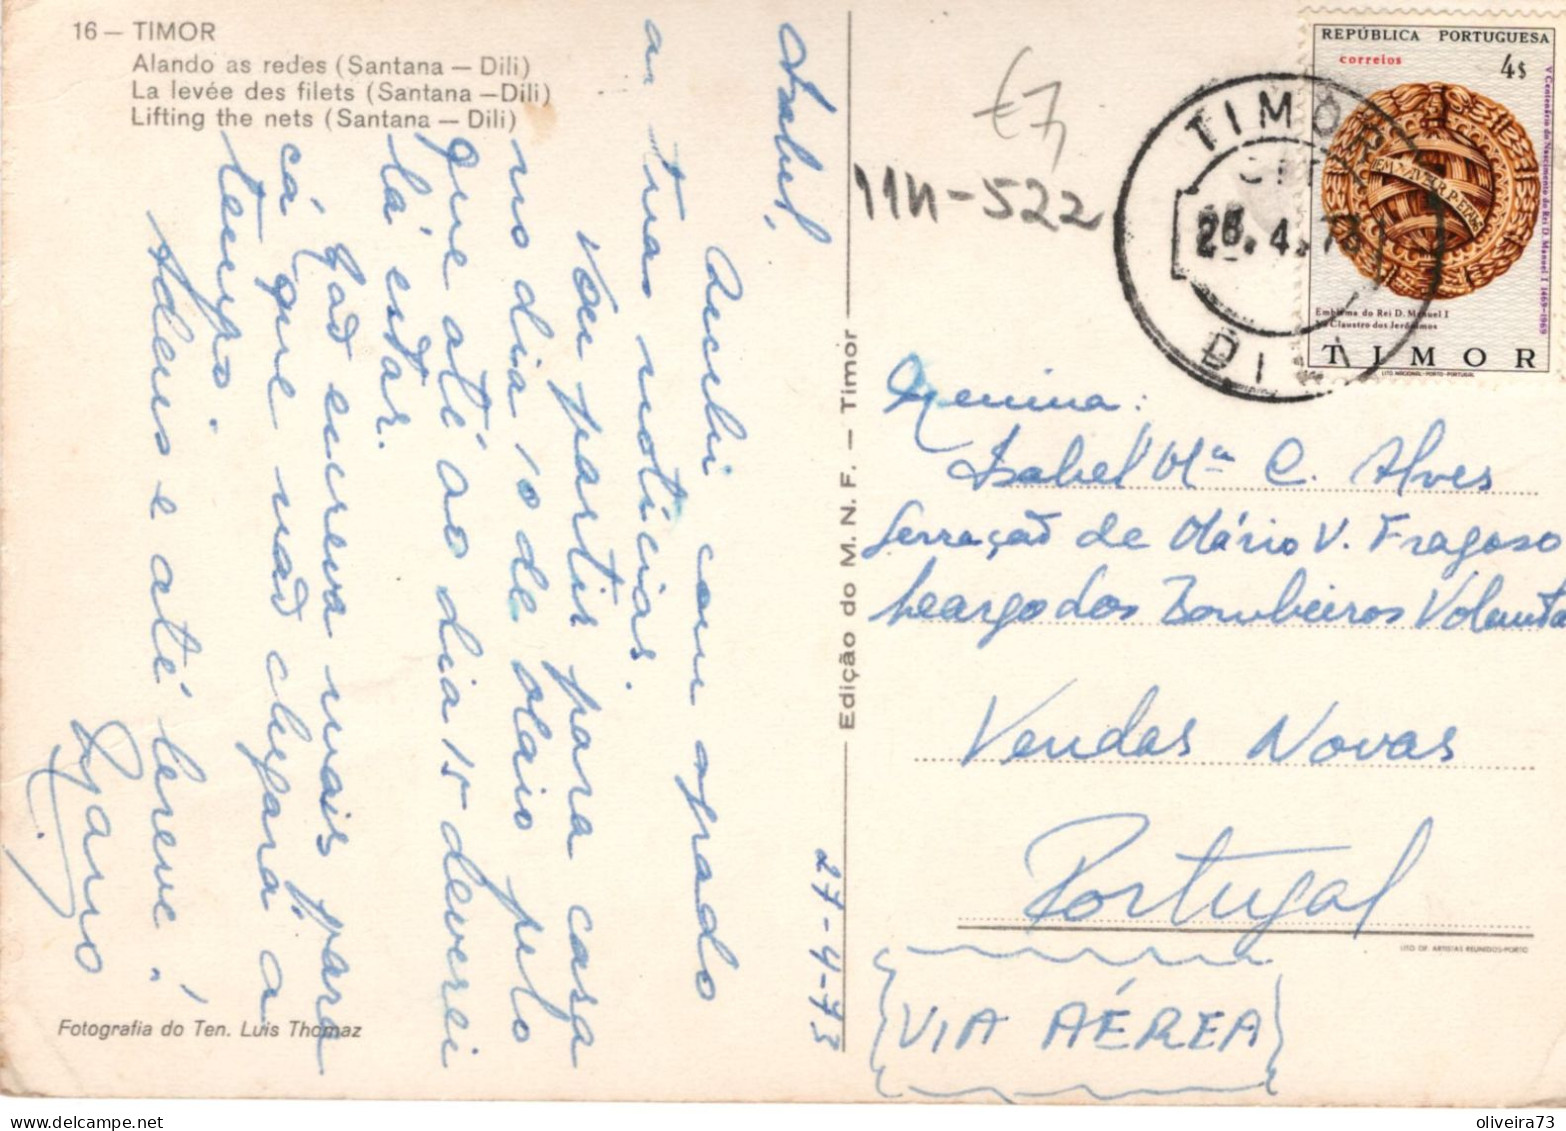 16 — TIMOR
Alando as redes (Santana — Dili)
La levée des filets (Santana —Dili)
Lifting the nets (Santana — Dili)
27-4-73
Isabel,
Recebi com agrado
as tuas notícias.
Vou partir para casa
no dia 10 de Maio pelo
que até ao dia 15 deverei
lá estar.
Não escreva mais para
cá que não chegará a
tempo.
Adeus e até breve!
Fotografia do Ten. Luis Thomaz
Edição do M. N. F. — Timor
€7
11N-522
TIMOR
CTT
28.4.73
DILI
REPÚBLICA PORTUGUESA
correios
4$
V Centenário do Nascimento do Rei D. Manuel I 1469-1969
Emblema do Rei D. Manuel I
No Claustro dos Jerónimos
TIMOR
LITO. NACIONAL - PORTO - PORTUGAL
Menina:
Isabel Mª C. Alves
Serração de Mário V. Fragoso
Largo dos Bombeiros Volunta
Vendas Novas
Portugal
LITO OF. ARTISTAS REUNIDOS-PORTO
VIA AÉREA
oliveira73